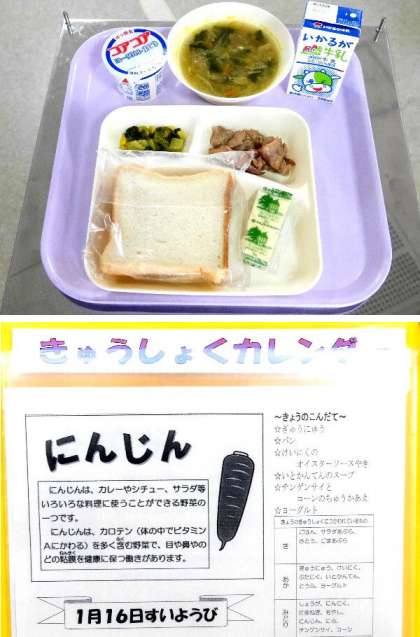 コアコア
いかるが
牛乳
きゅうしょくカレンダー
にんじん
にんじんは、カレーやシチュー、サラダ等
いろいろな料理に使うことができる野菜の
一つです。
にんじんは、カロテン（体の中でビタミン
Aにかわる）を多く含む野菜で、目や鼻やの
どの粘膜を健康に保つ働きがあります。
1月16日すいようび
～きょうのこんだて～
☆ぎゅうにゅう
☆パン
☆けいにくの
オイスターソースやき
☆いとかんてんのスープ
☆チンゲンサイと
コーンのちゅうかあえ
☆ヨーグルト
きょうのきゅうしょくにつかわれているもの
き
ごはん、サラダあぶら、
さとう、ごまあぶら
あか
ぎゅうにゅう、けいにく、
ぶたにく、いとかんてん、
とうふ、ヨーグルト
みどり
しょうが、にんにく、
たまねぎ、もやし、
にんじん、にら、
チンゲンサイ、コーン